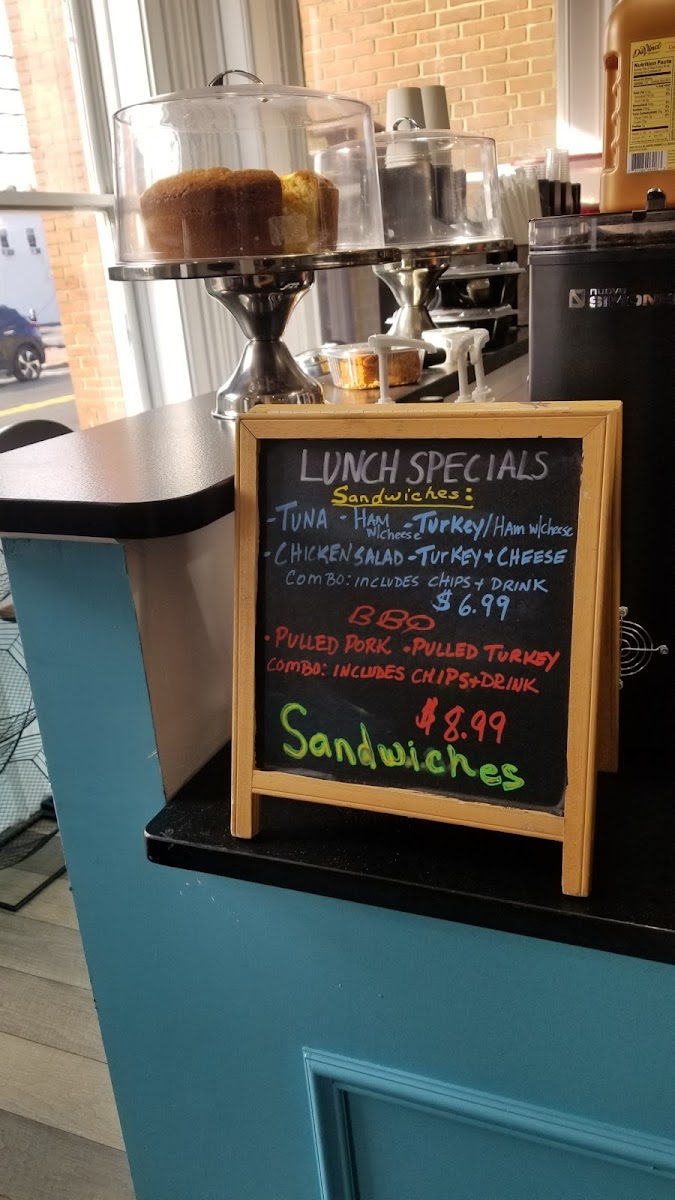 DaVinci
Nutrition Facts
nuova
SIMONE
LUNCH SPECIALS
Sandwiches:
- TUNA - HAM w/cheese - Turkey/Ham w/cheese
- CHICKEN SALAD - TurKEY + CHEESE
COMBO: INCLUDES CHIPS + DRINK
$6.99
BBQ
• PULLED PORK • PULLED TURKEY
COMBO: INCLUDES CHIPS + DRINK
$8.99
Sandwiches